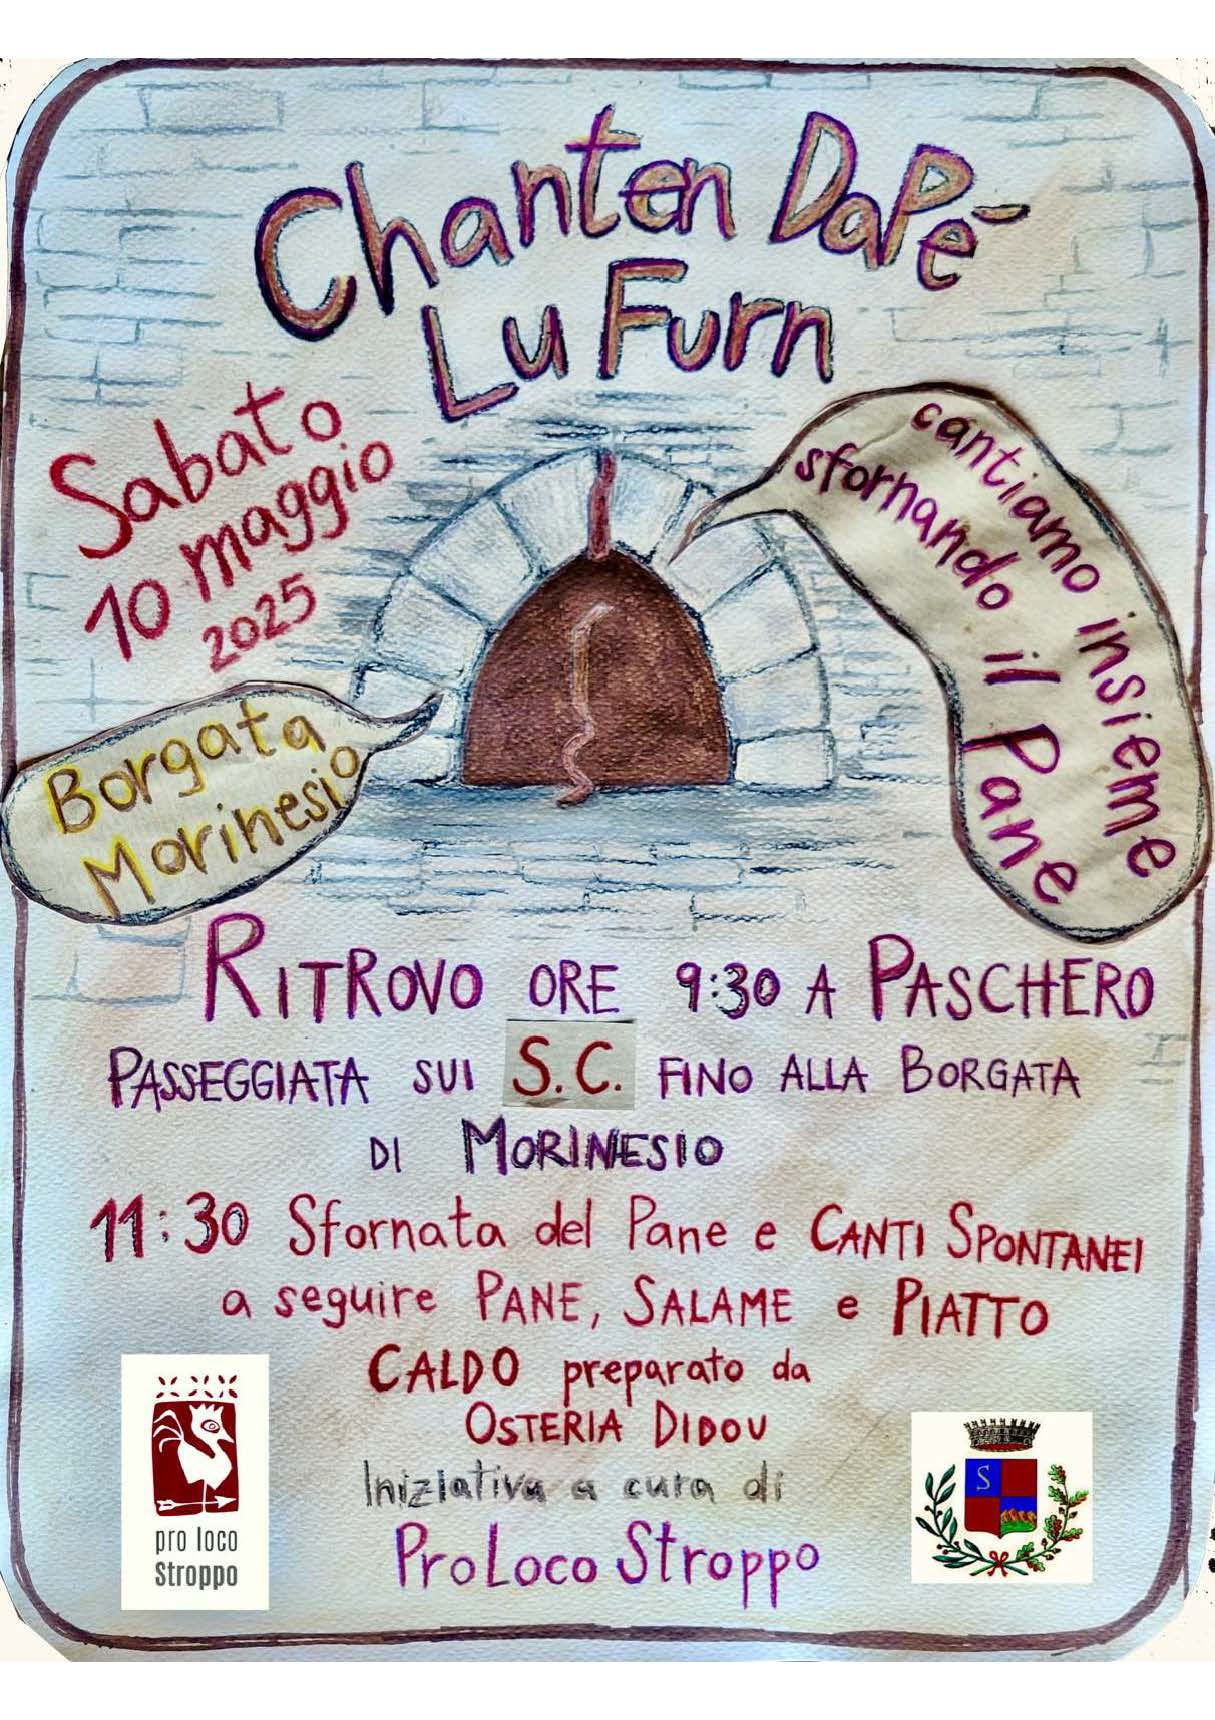 Chanten DaPé
Lu Furn
Sabato
10 maggio
2025
cantiamo insieme
sfornando il Pane
Borgata
Morinesio
RITROVO ORE 9:30 A PASCHERO
PASSEGGIATA SUI S.C. FINO ALLA BORGATA
DI MORINESIO
11:30 Sfornata del Pane e CANTI SPONTANEI
a seguire PANE, SALAME e PIATTO
CALDO preparato da
OSTERIA DIDOU
Iniziativa a cura di
ProLoco Stroppo
pro loco
Stroppo
S